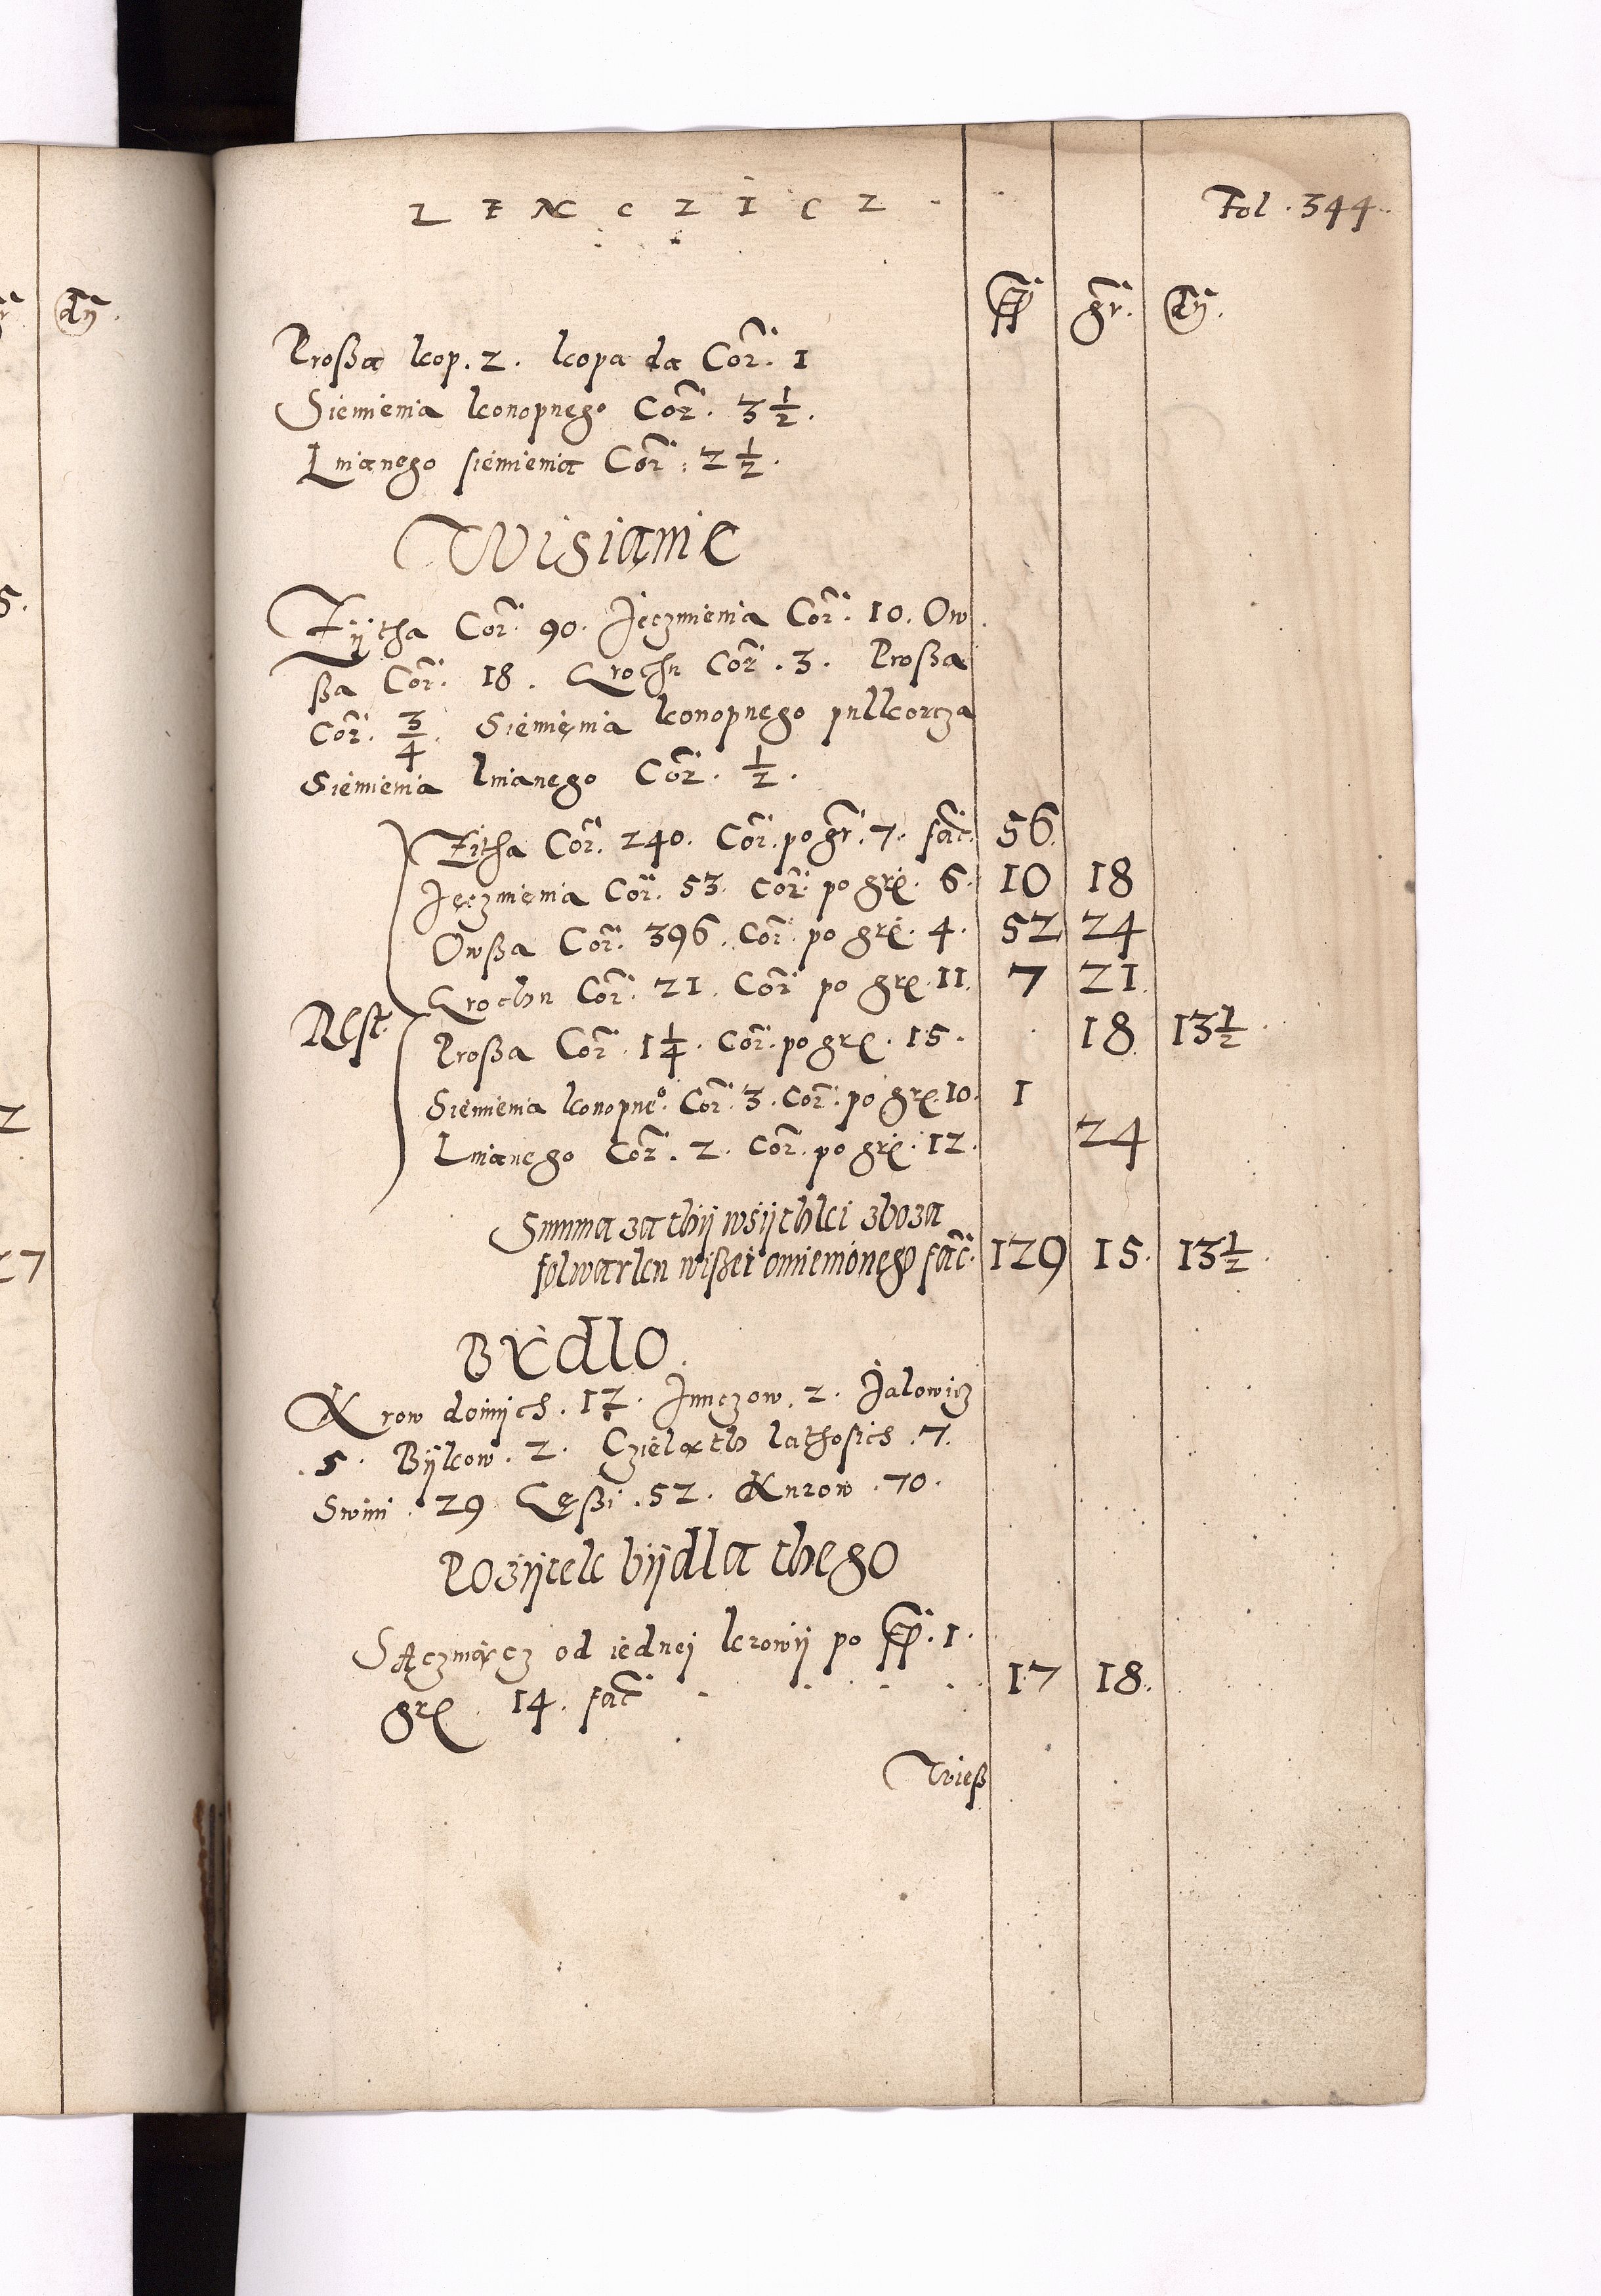 LENCZICZ
Fol. 344.
ff gr. dn.
dn.
Prossa kop. 2. kopa da Cor. 1
Siemienia konopnego Cor. 3 1/2.
Lnianego siemienia Cor: 2 1/2.
5.
Wisianie
Zÿtha Cor. 90. Jęczmienia Cor. 10. Ow
ssa Cor. 18. Grochu Cor. 3. Prossa
Cor. 3/4. Siemięnia konopnego pulkorcza
Siemienia lnianego Cor. 1/2.
Zitha Cor. 240. Cor. po gr. 7. fac. 56.
Jęczmięnia Cor. 53. Cor. po gr. 6. 10 18
Owssa Cor. 396. Cor. po gr. 4. 52 24
Grochu Cor. 21. Cor po gr. 11. 7 21.
Rest.
Prossa Cor. 1 1/4. Cor. po gr. 15. 18. 13 1/2.
Siemienia konopneo. Cor. 3. Cor. po gr. 10. 1
Lnianego Cor. 2. Cor. po gr. 12. 24
Summa za thÿ wsÿthki zboza
folwarku wisssei omienionego fac. 129 15. 13 1/2.
Bÿdlo.
Krow doinÿch. 12. Junczow. 2. Jalowicz
5. Bÿkow. 2. Czieląth lathosich. 7.
Swini. 29 Gęssi. 52. Kurow. 70.
Pozÿtek bÿdla thego
S Ączmącz od iednej krowÿ po ff. 1.
gr. 14. fac 17 18.
Wiess